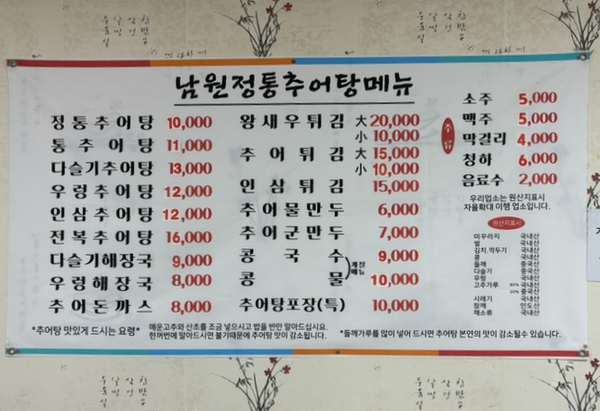 남원정통추어탕메뉴
정통추어탕 10,000
통추어탕 11,000
다슬기추어탕 13,000
우렁추어탕 12,000
인삼추어탕 12,000
전복추어탕 16,000
다슬기해장국 9,000
우렁해장국 8,000
추어돈까스 8,000
왕새우튀김 大 20,000
小 10,000
추어튀김 大 15,000
小 10,000
인삼튀김 15,000
추어물만두 6,000
추어군만두 7,000
콩국수 9,000
계절메뉴
콩물 10,000
추어탕포장(특) 10,000
소주 5,000
맥주 5,000
막걸리 4,000
청하 6,000
음료수 2,000
우리업소는 원산지표시
자율확대 이행 업소입니다.
원산지표시
미꾸라지 국내산
쌀 국내산
김치.깍두기 국내산
콩 국내산
들깨 중국산
다슬기 중국산
우렁 국내산
고추가루 80% 국내산
20% 중국산
시레기 국내산
참깨 인도산
채소류 국내산
*추어탕 맛있게 드시는 요령*
매운고추와 산초를 조금 넣으시고 밥을 반만 말아드십시요.
한꺼번에 말아드시면 불기때문에 추어탕 맛이 감소됩니다.
*들깨가루를 많이 넣어 드시면 추어탕 본연의 맛이 감소될수 있습니다.